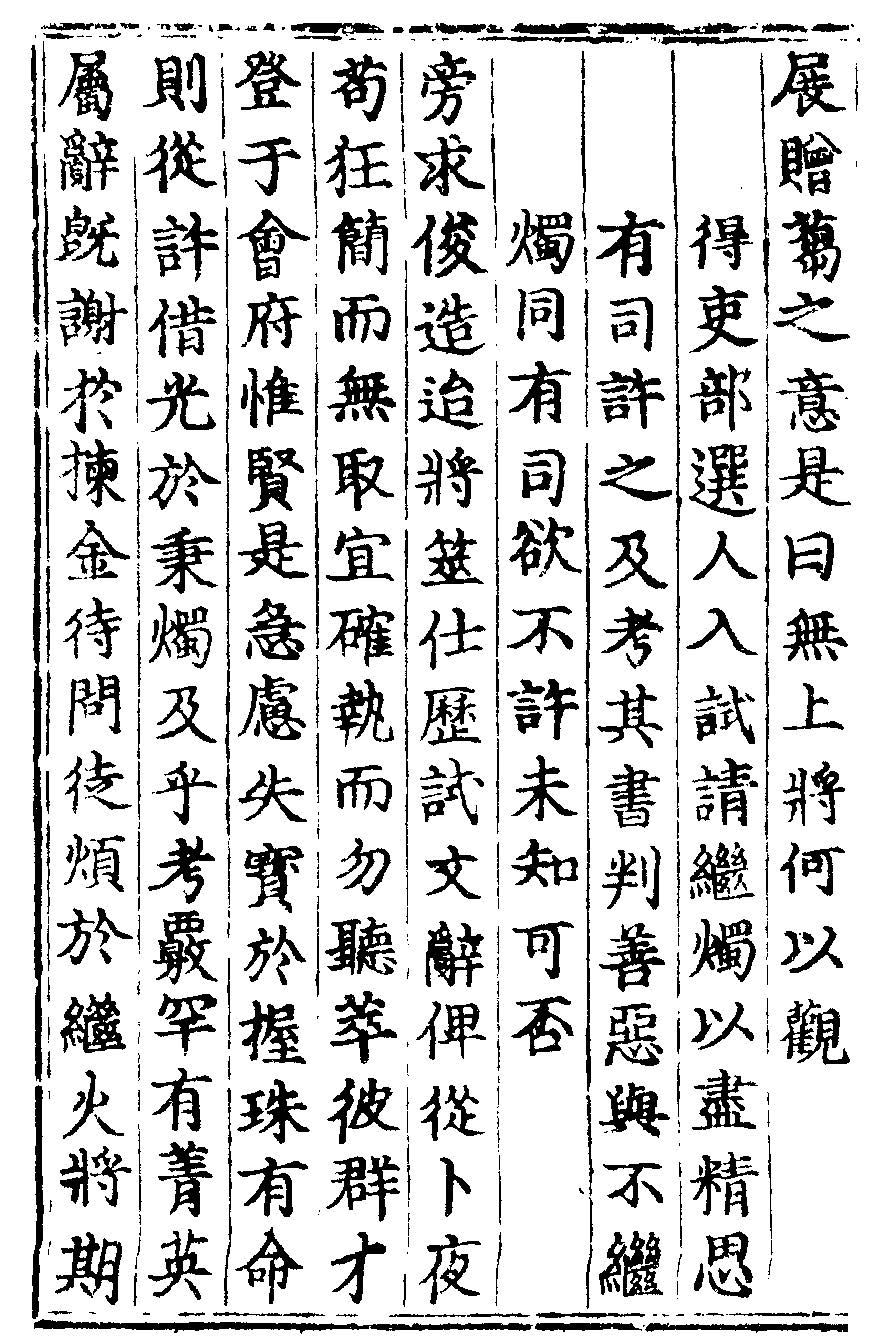 展贈蒭之意是曰無上將何以觀
得吏部選人入試請繼燭以盡精思
有司許之及考其書判善惡與不繼
燭同有司欲不許未知可否
旁求俊造迨將筮仕歷試文辭俾從卜夜
苟狂簡而無取宜確執而勿聽萃彼群才
登于會府惟賢是急慮失寶於握珠有命
則從許借光於秉燭及乎考覈罕有菁英
屬辭旣謝於揀金待問徒煩於繼火將期